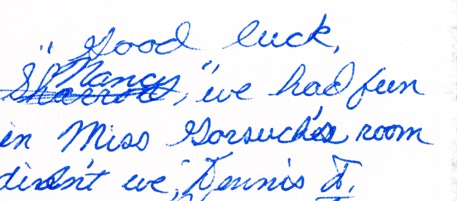 "Good luck,
Nancy," we had fun
in Miss Gorsuch's room
didn't we, Dennis F.